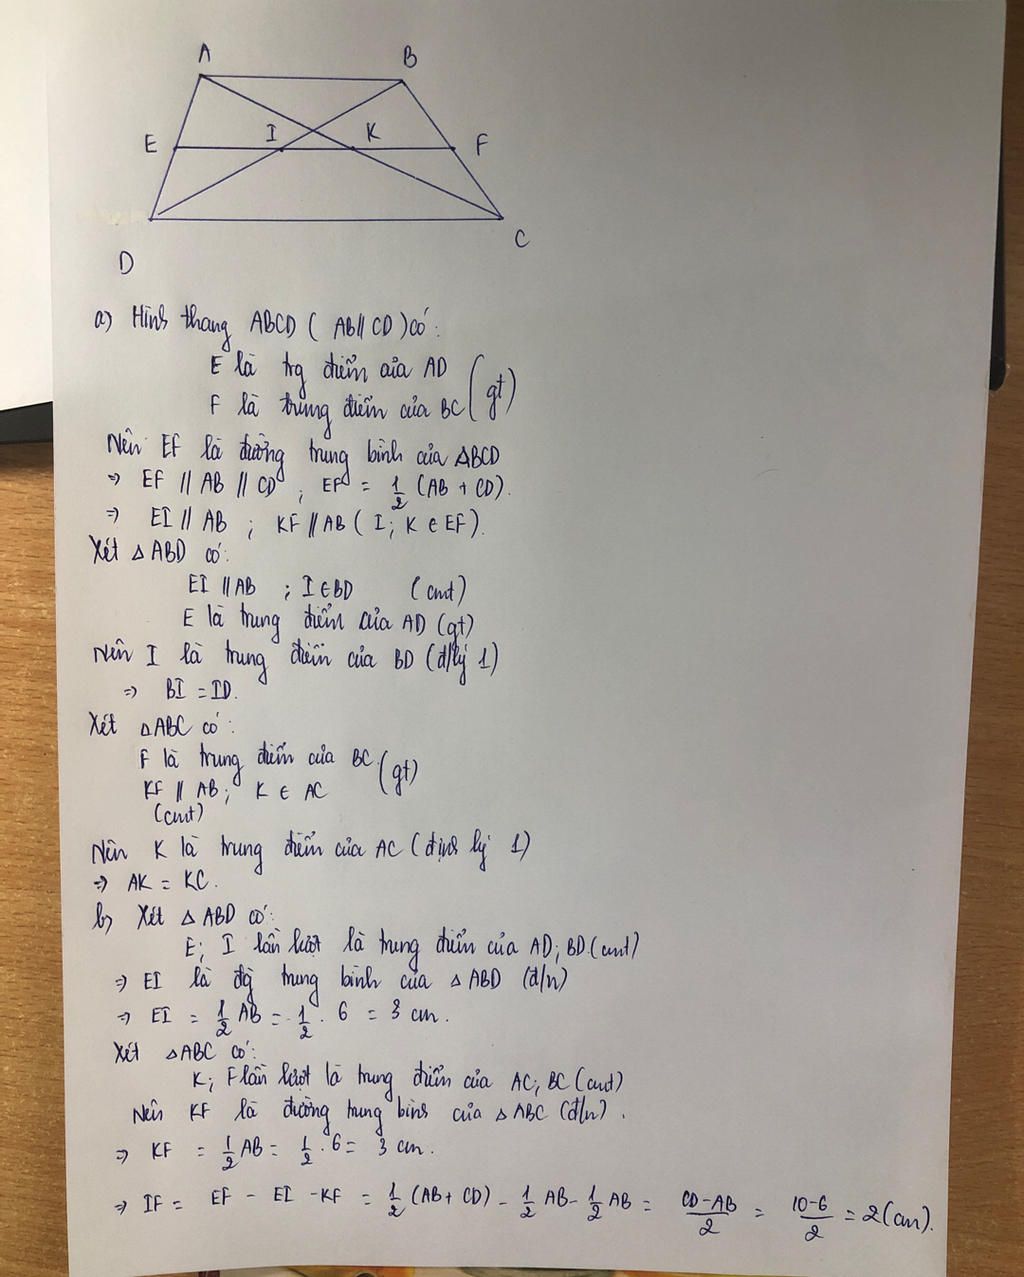 A B
E I K F
D C
a) Hình thang ABCD ( AB // CD ) có:
E là trg điểm của AD
F là trung điểm của BC (gt)
Nên EF là đường trung bình của ΔBCD
⇒ EF // AB // CD ; EF = 1/2 (AB + CD).
⇒ EI // AB ; KF // AB ( I; K ∈ EF).
Xét Δ ABD có:
EI // AB ; I ∈ BD (cmt)
E là trung điểm của AD (gt)
Nên I là trung điểm của BD (đ/lý 1)
⇒ BI = ID.
Xét ΔABC có:
F là trung điểm của BC (gt)
KF // AB; K ∈ AC
(cmt)
Nên K là trung điểm của AC (định lý 1)
⇒ AK = KC.
b) Xét Δ ABD có:
E; I lần lượt là trung điểm của AD; BD (cmt)
⇒ EI là đg trung bình của Δ ABD (đ/n)
⇒ EI = 1/2 AB = 1/2 . 6 = 3 cm.
Xét ΔABC có:
K; F lần lượt là trung điểm của AC; BC (cmt)
Nên KF là đường trung bình của Δ ABC (đ/n).
⇒ KF = 1/2 AB = 1/2 . 6 = 3 cm.
⇒ IF = EF - EI - KF = 1/2 (AB + CD) - 1/2 AB - 1/2 AB = CD-AB/2 = 10-6/2 = 2 (cm).